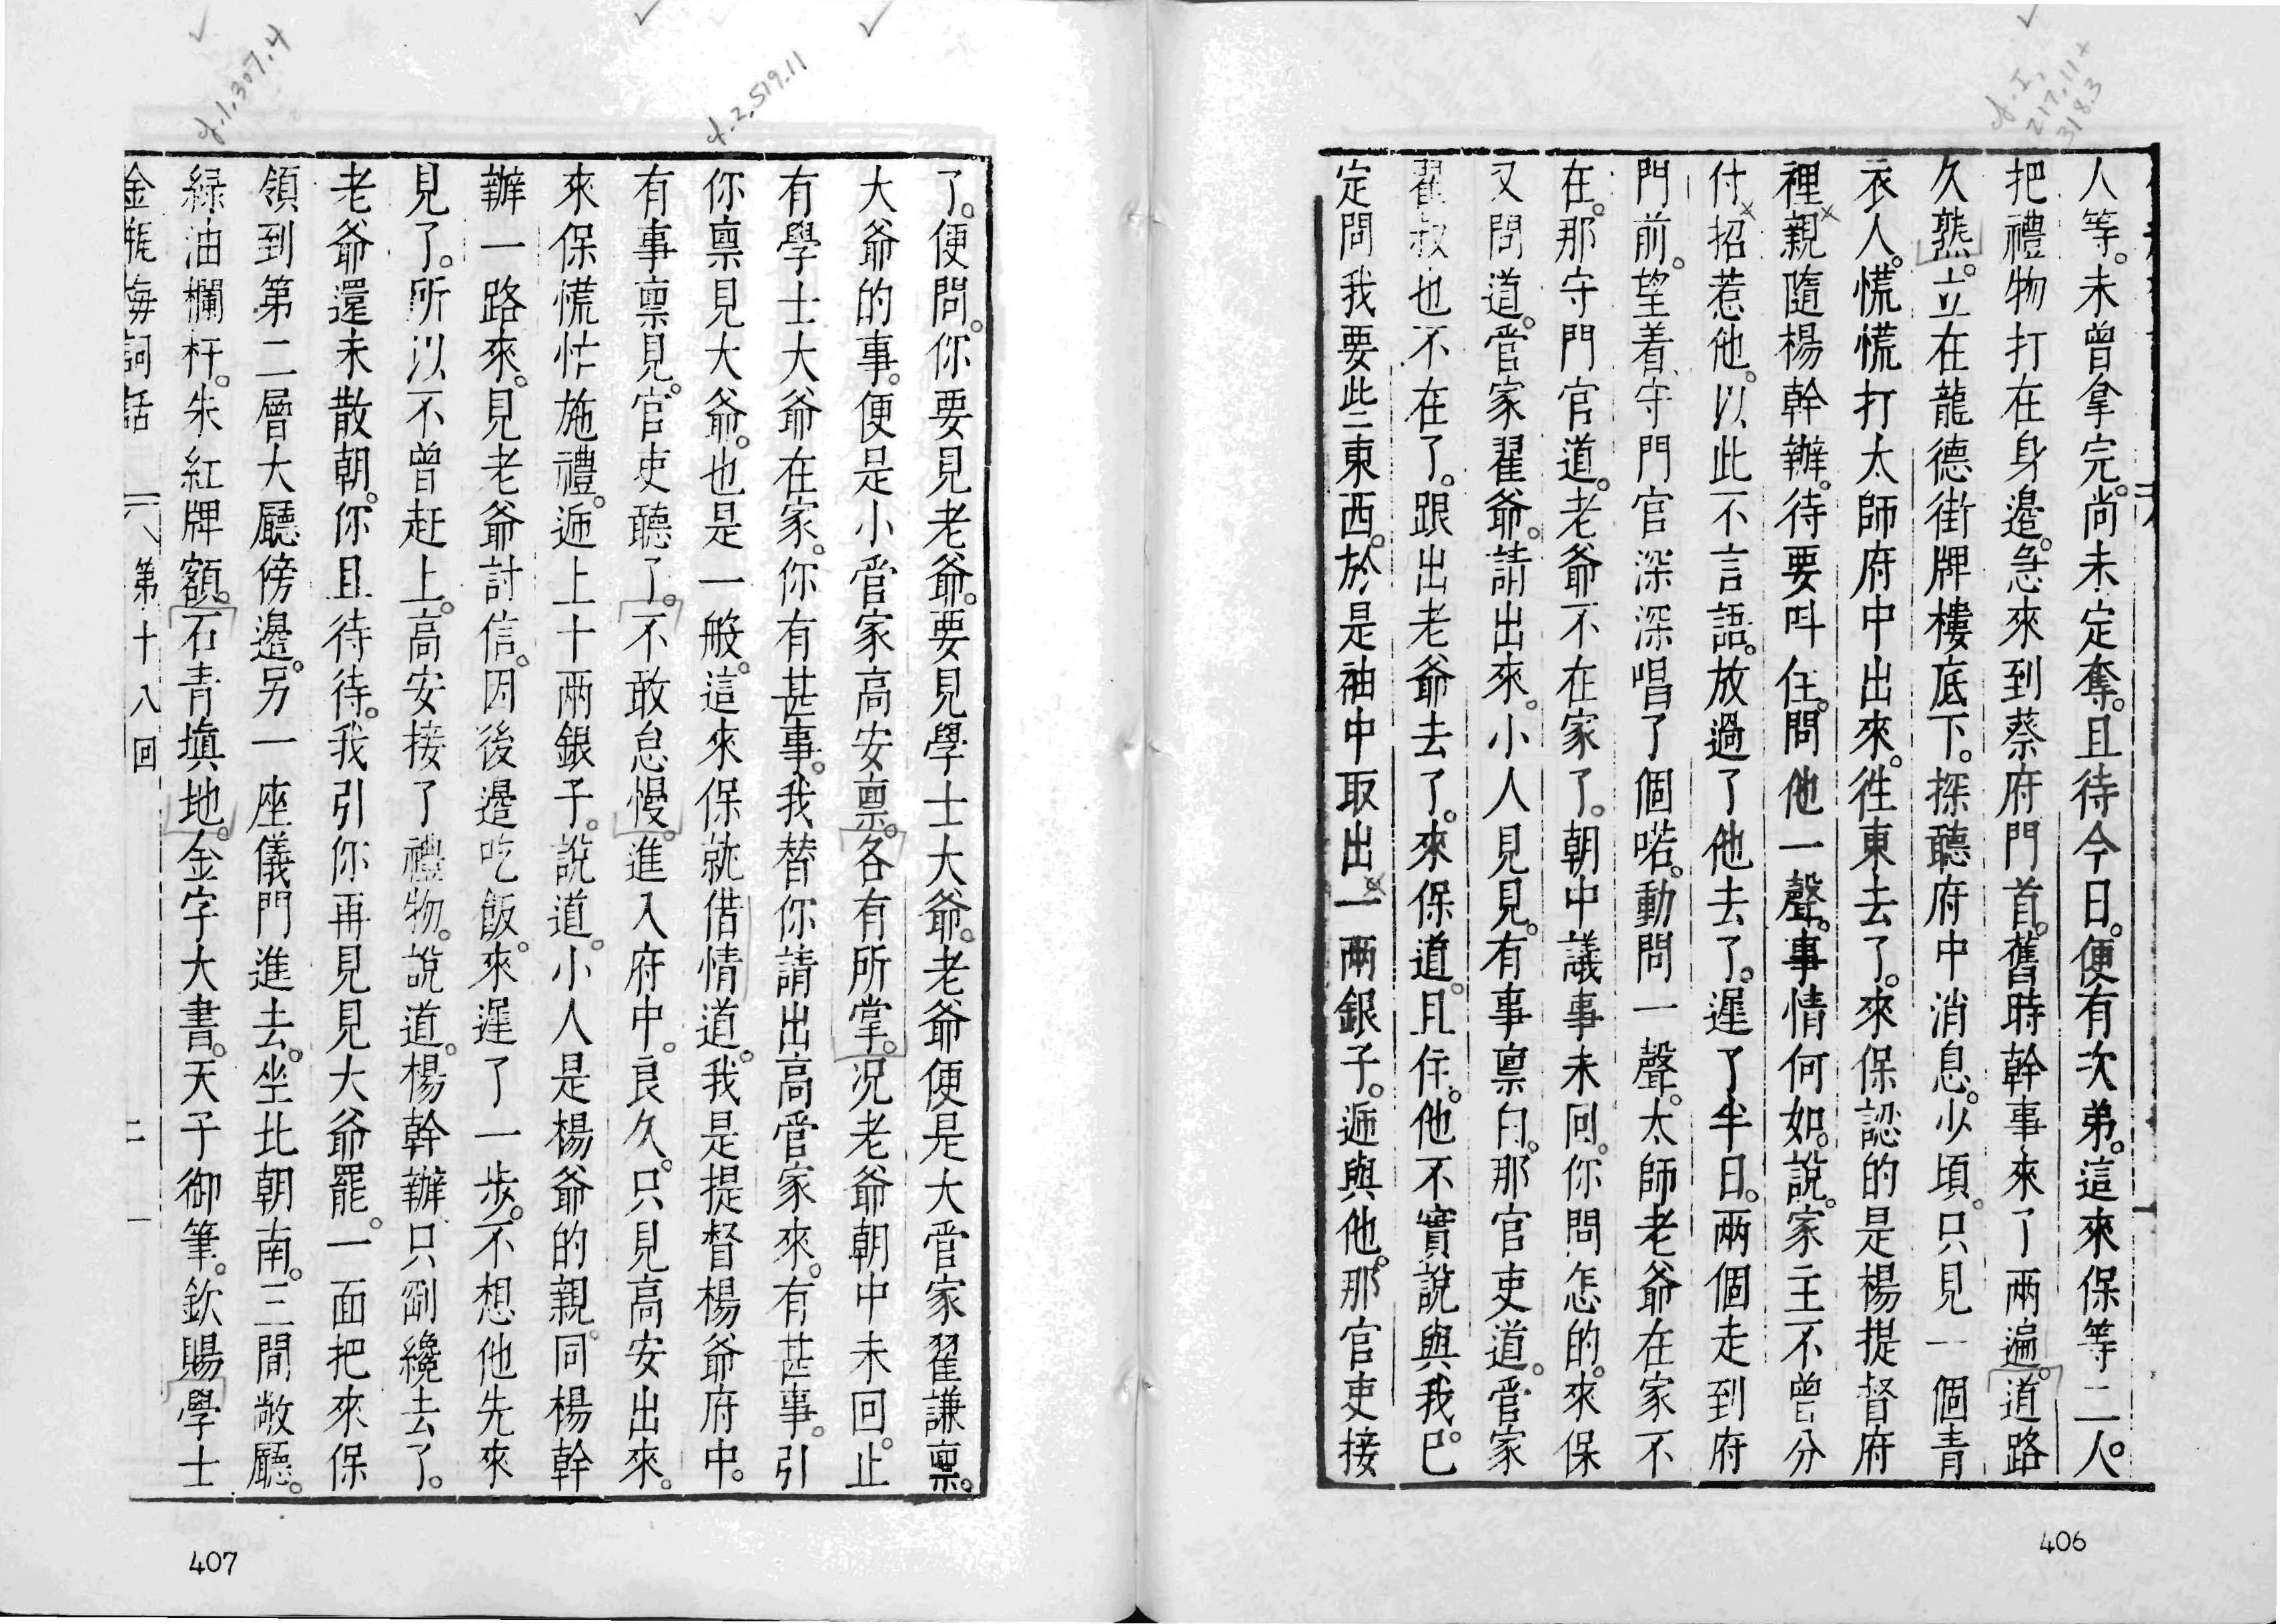 人等。未曾拿完。尚未定奪。且待今日。便有次弟。這來保等二人。
把禮物打在身邊。急來到蔡府門首。舊時幹事來了兩遍。道路
久熟。立在龍德街牌樓底下。探聽府中消息。少頃。只見一個青
衣人。慌慌打太師府中出來。徃東去了。來保認的是楊提督府
裡親隨楊幹辦。待要呌住。問他一聲。事情何如。說。家主不曾分
付招惹他。以此不言語。放過了他去了。遲了半日。兩個走到府
門前。望着守門官深深唱了個喏。動問一聲。太師老爺在家不
在。那守門官道。老爺不在家了。朝中議事未回。你問怎的。來保
又問道。管家翟爺。請出來。小人見見。有事禀白。那官吏道。管家
翟叔也不在了。跟出老爺去了。來保道。且住。他不實說與我。已
定問我要些東西。於是袖中取出一兩銀子。遞與他。那官吏接
406
了。便問。你要見老爺。要見學士大爺。老爺便是大管家翟謙禀。
大爺的事。便是小管家高安禀。各有所掌。况老爺朝中未回。止
有學士大爺在家。你有甚事。我替你請出高管家來。有甚事。引
你禀見大爺。也是一般。這來保就借情道。我是提督楊爺府中。
有事禀見。官吏聽了。不敢怠慢。進入府中。良久。只見高安出來。
來保慌忙施禮。遞上十兩銀子。說道。小人是楊爺的親。同楊幹
辦一路來。見老爺討信。因後邊吃飯。來遲了一步。不想他先來
見了。所以不曾赶上。高安接了禮物。說道。楊幹辦只剛纔去了。
老爺還未散朝。你且待待。我引你再見見大爺罷。一面把來保
領到第二層大廳傍邊。另一座儀門進去。坐北朝南。三間敞廳。
緑油欄杆。朱紅牌額。石青塡地。金字大書。天子御筆。欽賜學士
金瓶梅詞話 第十八回 二
407
cf. I, 217.11+ 318.3
cf. 2, 519.11
cf. 1, 307.4